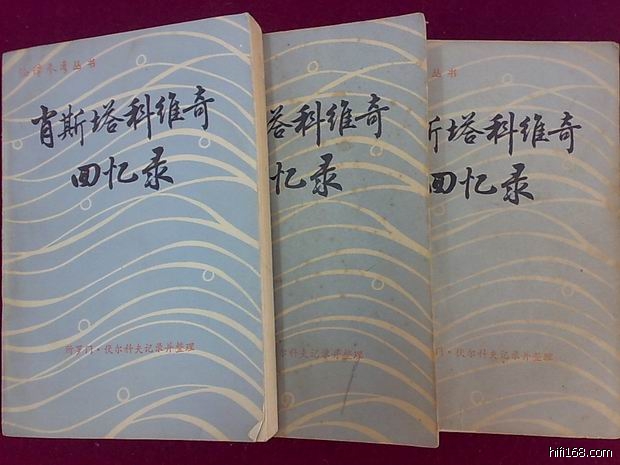 外译参考丛书
肖斯塔科维奇
回忆录
所罗门·伏尔科夫记录并整理
塔科维奇
忆录
尔科夫记录并整理
丛书
斯塔科维奇
回忆录
门·伏尔科夫记录并整理
hifi168.com